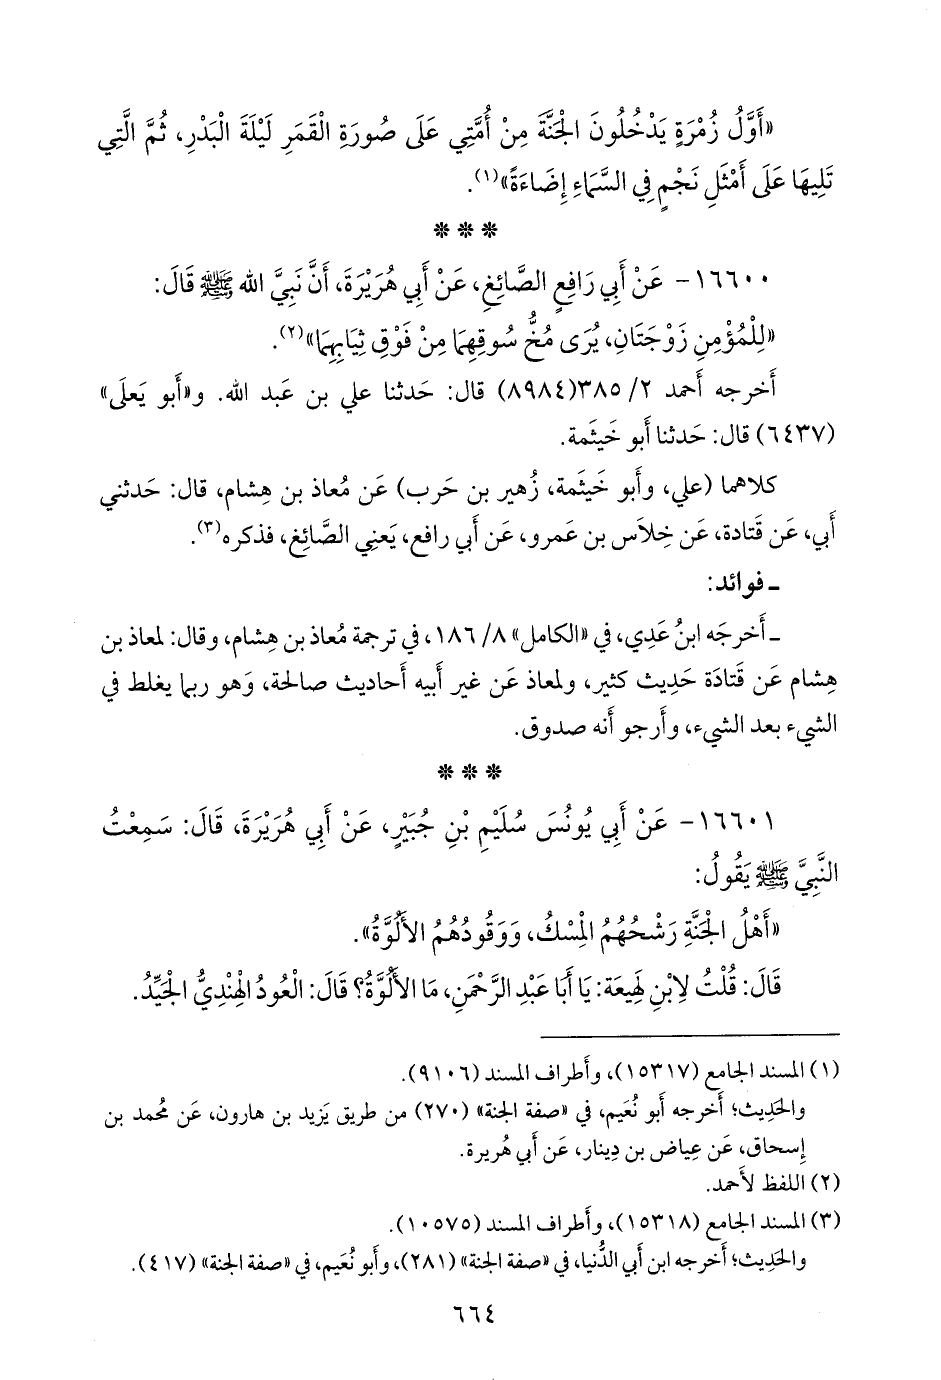 «أَوَّلُ زُمْرَةٍ يَدْخُلُونَ الجَنَّةَ مِنْ أُمَّتِي عَلَى صُورَةِ الْقَمَرِ لَيْلَةَ الْبَدْرِ، ثُمَّ الَّتِي
تَلِيهَا عَلَى أَمْثَلِ نَجْمٍ فِي السَّمَاءِ إِضَاءَةً»(١).
* * *
١٦٦٠٠- عَنْ أَبِي رَافِعٍ الصَّائِغِ، عَنْ أَبِي هُرَيْرَةَ، أَنَّ نَبِيَّ الله ﷺ قَالَ:
«لِلْمُؤْمِنِ زَوْجَتَانِ، يُرَى مُخُّ سُوقِهِمَا مِنْ فَوْقِ ثِيَابِهِمَا»(٢).
أَخرجه أَحمد ٢/ ٣٨٥(٨٩٨٤) قال: حَدثنا علي بن عَبد الله. و«أَبو يَعلَى»
(٦٤٣٧) قال: حَدثنا أَبو خَيثَمة.
كلاهما (علي، وأَبو خَيثَمة، زُهير بن حَرب) عَن مُعاذ بن هِشام، قال: حَدثني
أَبي، عَن قَتادة، عَن خِلاَس بن عَمرو، عَن أَبي رافع، يَعنِي الصَّائِغ، فذكره(٣).
ـ فوائد:
ـ أَخرجَه ابنُ عَدِي، في «الكامل» ٨/ ١٨٦، في ترجمة مُعاذ بن هِشام، وقال: لمعاذ بن
هِشام عَن قَتادَة حَدِيث كثير، ولمعاذ عَن غير أَبيه أَحاديث صالحة، وَهو ربما يغلط في
الشيء بعد الشيء، وأَرجو أَنه صدوق.
* * *
١٦٦٠١- عَنْ أَبِي يُونُسَ سُلَيْمِ بْنِ جُبَيْرٍ، عَنْ أَبِي هُرَيْرَةَ، قَالَ: سَمِعْتُ
النَّبِيَّ ﷺ يَقُولُ:
«أَهْلُ الجَنَّةِ رَشْحُهُمُ المِسْكُ، وَوَقُودُهُمُ الأَلُوَّةُ».
قَالَ: قُلْتُ لِابْنِ لَهِيعَة: يَا أَبَا عَبْدِ الرَّحْمَنِ، مَا الأَلُوَّةُ؟ قَالَ: الْعُودُ الهِنْدِيُّ الجَيِّدُ.
(١) المسند الجامع (١٥٣١٧)، وأَطراف المسند (٩١٠٦).
والحَدِيث؛ أَخرجه أَبو نُعَيم، في «صفة الجنة» (٢٧٠) من طريق يَزيد بن هارون، عَن مُحمد بن
إِسحاق، عَن عِياض بن دِينار، عَن أَبي هُريرة.
(٢) اللفظ لأَحمد.
(٣) المسند الجامع (١٥٣١٨)، وأَطراف المسند (١٠٥٧٥).
والحَدِيث؛ أَخرجه ابن أَبي الدُّنيا، في «صفة الجنة» (٢٨١)، وأَبو نُعَيم، في «صفة الجنة» (٤١٧).
٦٦٤